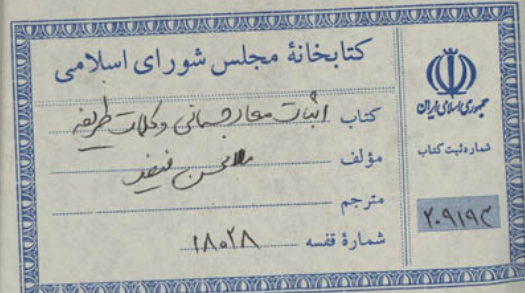 کتابخانهٔ مجلس شورای اسلامی
کتاب اثبات معاد جسمانی و کلمات طریفه
مؤلف ملا محسن فیض
مترجم
شمارهٔ قفسه ۱۸۰۲۸
جمهوری اسلامی ایران
شماره ثبت کتاب
۲۰۹۱۹۳